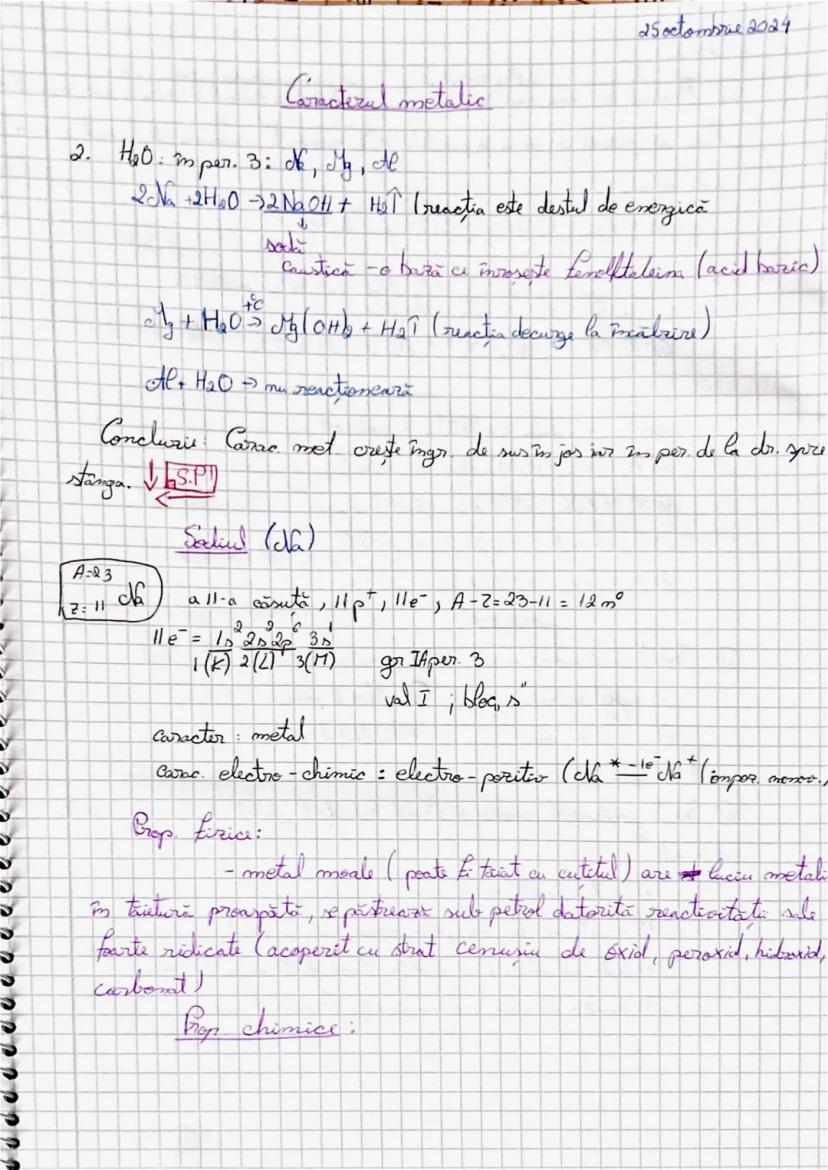 25 octombrie 2024
Caracterul metalic
2. H₂O: în per. 3: Na, Mg, Al
2Na + 2H₂O → 2NaOH + H₂↑ (reacția este destul de energică
↓
sodă
caustică - o bază ce înroșește fenolftaleina (acid bazic)
Mg + H₂O +°C→ Mg(OH)₂ + H₂↑ (reacția decurge la încălzire)
Al + H₂O → nu reacționează
Concluzie: Carac. met. crește în gr. de sus în jos iar în per. de la dr. spre
stânga. ↓ S.P ←
Sodiul (Na)
A=23
Z=11 Na a 11-a căsuță, 11p⁺, 11e⁻, A-Z=23-11 = 12n⁰
11e⁻ = 1s² 2s² 2p⁶ 3s¹
1(K) 2(L) 3(M) gr IA per. 3
val I ; bloc „s”
caracter: metal
carac. electro-chimic: electro-pozitiv (Na* -1e⁻ Na⁺ (ion poz. monov.,
Prop. fizice:
- metal moale (poate fi tăiat cu cuțitul) are luciu metali
în tăietură proaspătă, se păstrează sub petrol datorită reactivității sale
foarte ridicate (acoperit cu strat cenușiu de oxid, peroxid, hidroxid,
carbonat)
Prop. chimice: